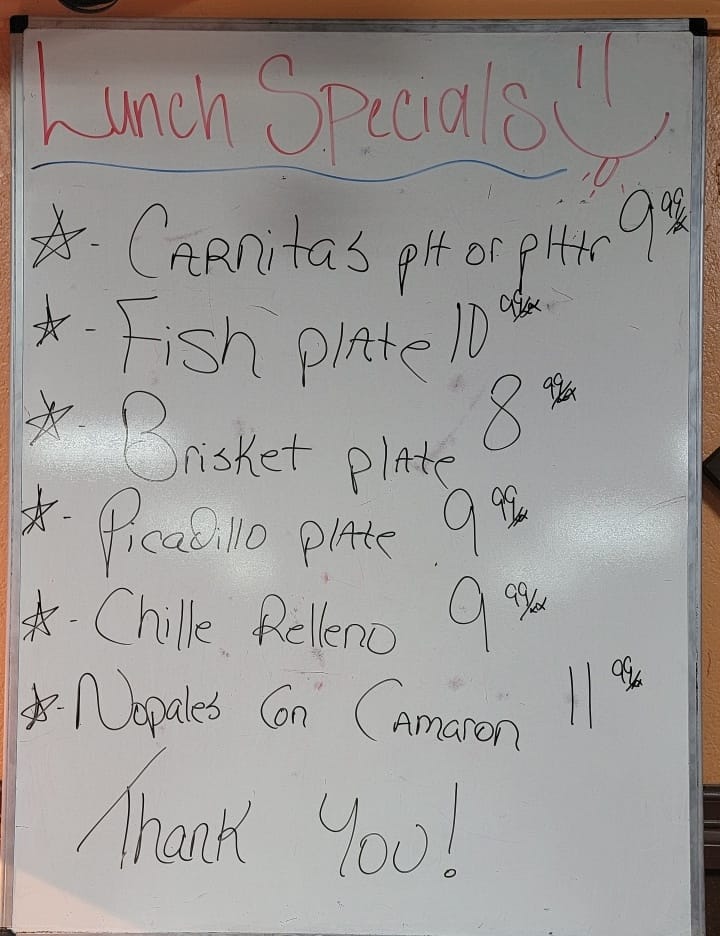 Lunch Specials
☆- CARnitas plt or plttr 9 99/xx
☆- Fish plAte 10 99/xx
☆- Brisket plAte 8 99/xx
☆- Picadillo plAte 9 99/xx
☆- Chille Relleno 9 99/xx
☆- Nopales Con CAmaron 11 99/xx
Thank You!